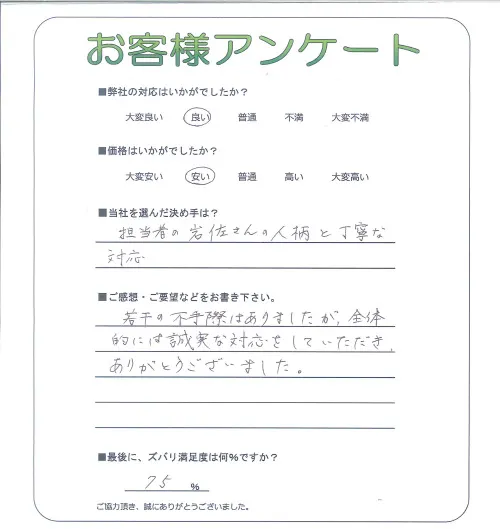 お客様アンケート
■弊社の対応はいかがでしたか？
大変良い 良い 普通 不満 大変不満
■価格はいかがでしたか？
大変安い 安い 普通 高い 大変高い
■当社を選んだ決め手は？
担当者の岩佐さんの人柄と丁寧な
対応
■ご感想・ご要望などをお書き下さい。
若干の不手際はありましたが、全体
的には誠実な対応をしていただき、
ありがとうございました。
■最後に、ズバリ満足度は何%ですか？
75 %
ご協力頂き、誠にありがとうございました。